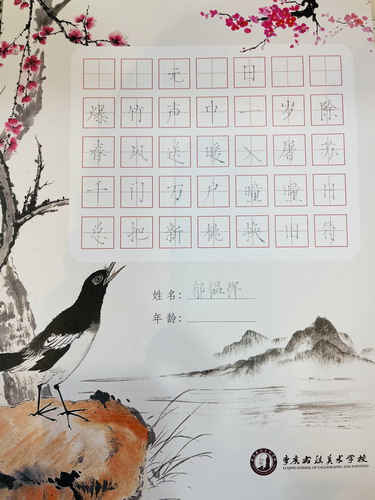 元日
爆竹声中一岁除
春风送暖入屠苏
千门万户曈曈日
总把新桃换旧符
姓名:
年龄:
LI QING SCHOOL OF CALLIGRAPHY AND PAINTING